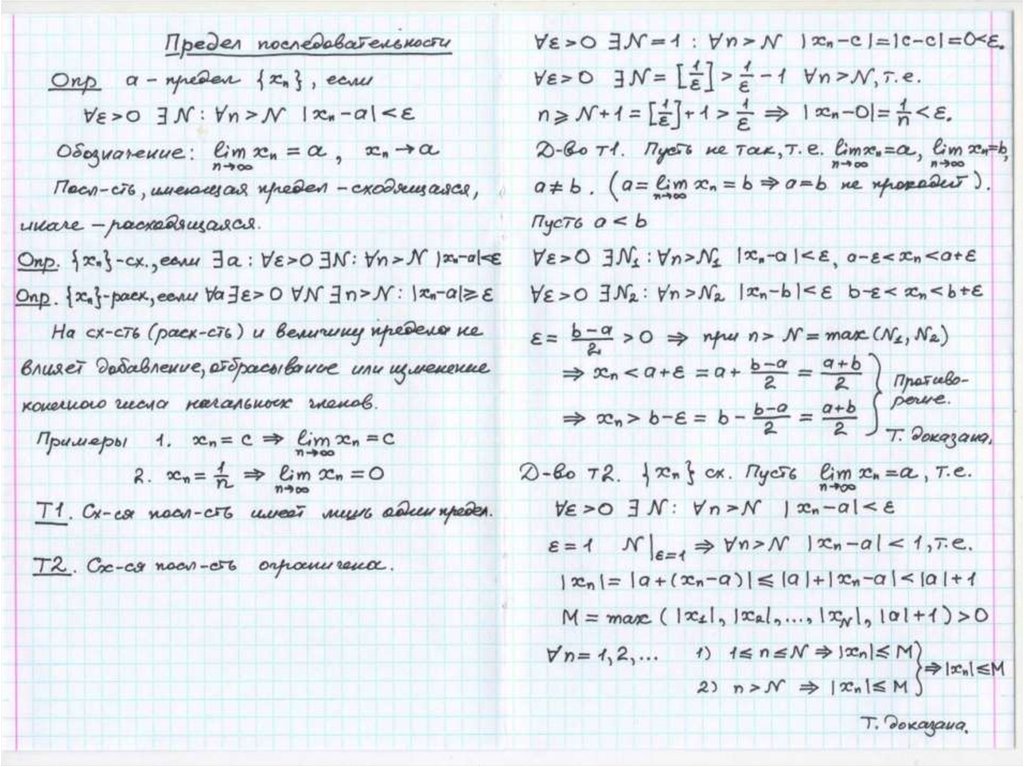 Предел последовательности
Опр a – предел {xₙ}, если
∀ε>0 ∃N: ∀n>N |xₙ–a|<ε
Обозначение: lim xₙ = a, xₙ→a
n→∞
Посл-сть, имеющая предел – сходящаяся,
иначе – расходящаяся.
Опр. {xₙ}-сх., если ∃a: ∀ε>0 ∃N: ∀n>N |xₙ–a|<ε
Опр. {xₙ}-расх, если ∀a ∃ε>0 ∀N ∃n>N: |xₙ–a|≥ε
На сх-сть (расх-сть) и величину предела не
влияет добавление, отбрасывание или изменение
конечного числа начальных членов.
Примеры 1. xₙ = c ⇒ lim xₙ = c
n→∞
2. xₙ = 1/n ⇒ lim xₙ = 0
n→∞
Т1. Сх-ся посл-сть имеет лишь один предел.
Т2. Сх-ся посл-сть ограничена.
∀ε>0 ∃N=1: ∀n>N |xₙ–c|=|c–c|=0<ε.
∀ε>0 ∃N=[1/ε]>1/ε–1 ∀n>N, т.е.
n≥N+1=[1/ε]+1>1/ε ⇒ |xₙ–0|=1/n<ε.
Д-во т1. Пусть не так, т.е. lim xₙ=a, lim xₙ=b,
n→∞ n→∞
a≠b. (a=lim xₙ=b ⇒ a=b не проходит).
n→∞
Пусть a<b
∀ε>0 ∃N₁: ∀n>N₁ |xₙ–a|<ε, a–ε<xₙ<a+ε
∀ε>0 ∃N₂: ∀n>N₂ |xₙ–b|<ε b–ε<xₙ<b+ε
ε = (b–a)/2 > 0 ⇒ при n>N=max(N₁,N₂)
⇒ xₙ<a+ε = a+(b–a)/2 = (a+b)/2
⇒ xₙ>b–ε = b–(b–a)/2 = (a+b)/2
} Противо-
речие.
Т. доказана.
Д-во т2. {xₙ} сх. Пусть lim xₙ=a, т.е.
n→∞
∀ε>0 ∃N: ∀n>N |xₙ–a|<ε
ε=1 N|ε=1 ⇒ ∀n>N |xₙ–a|<1, т.е.
|xₙ|=|a+(xₙ–a)|≤|a|+|xₙ–a|<|a|+1
M=max(|x₁|,|x₂|,...,|x_N|,|a|+1)>0
∀n=1,2,... 1) 1≤n≤N ⇒ |xₙ|≤M
2) n>N ⇒ |xₙ|≤M
} ⇒ |xₙ|≤M
Т. доказана.